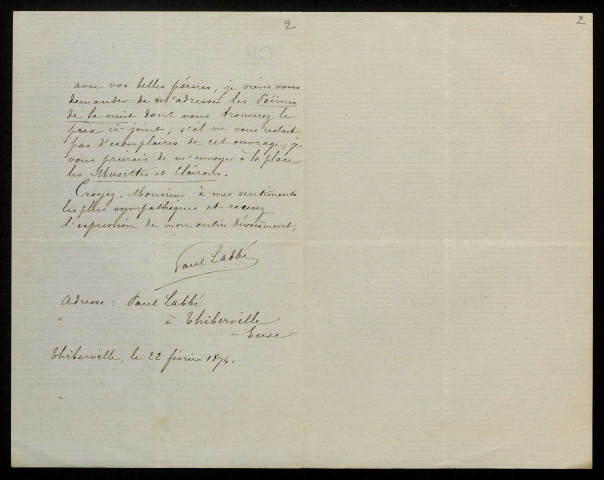 2
2
avec vos belles poésies, je viens vous
demander de m'adresser les Poëmes
de la nuit dont vous trouverez le
prix ci-joint; s'il ne vous restait
pas d'exemplaires de cet ouvrage, je
vous prierais de m'envoyer à la place
les Musettes et Clairons.
Croyez, Monsieur, à mes sentiments
les plus sympathiques et recevez
l'expression de mon entier dévouement,
Paul Labbé
Adresse : Paul Labbé
à Thiberville
- Eure -
Thiberville, le 22 février 1874.